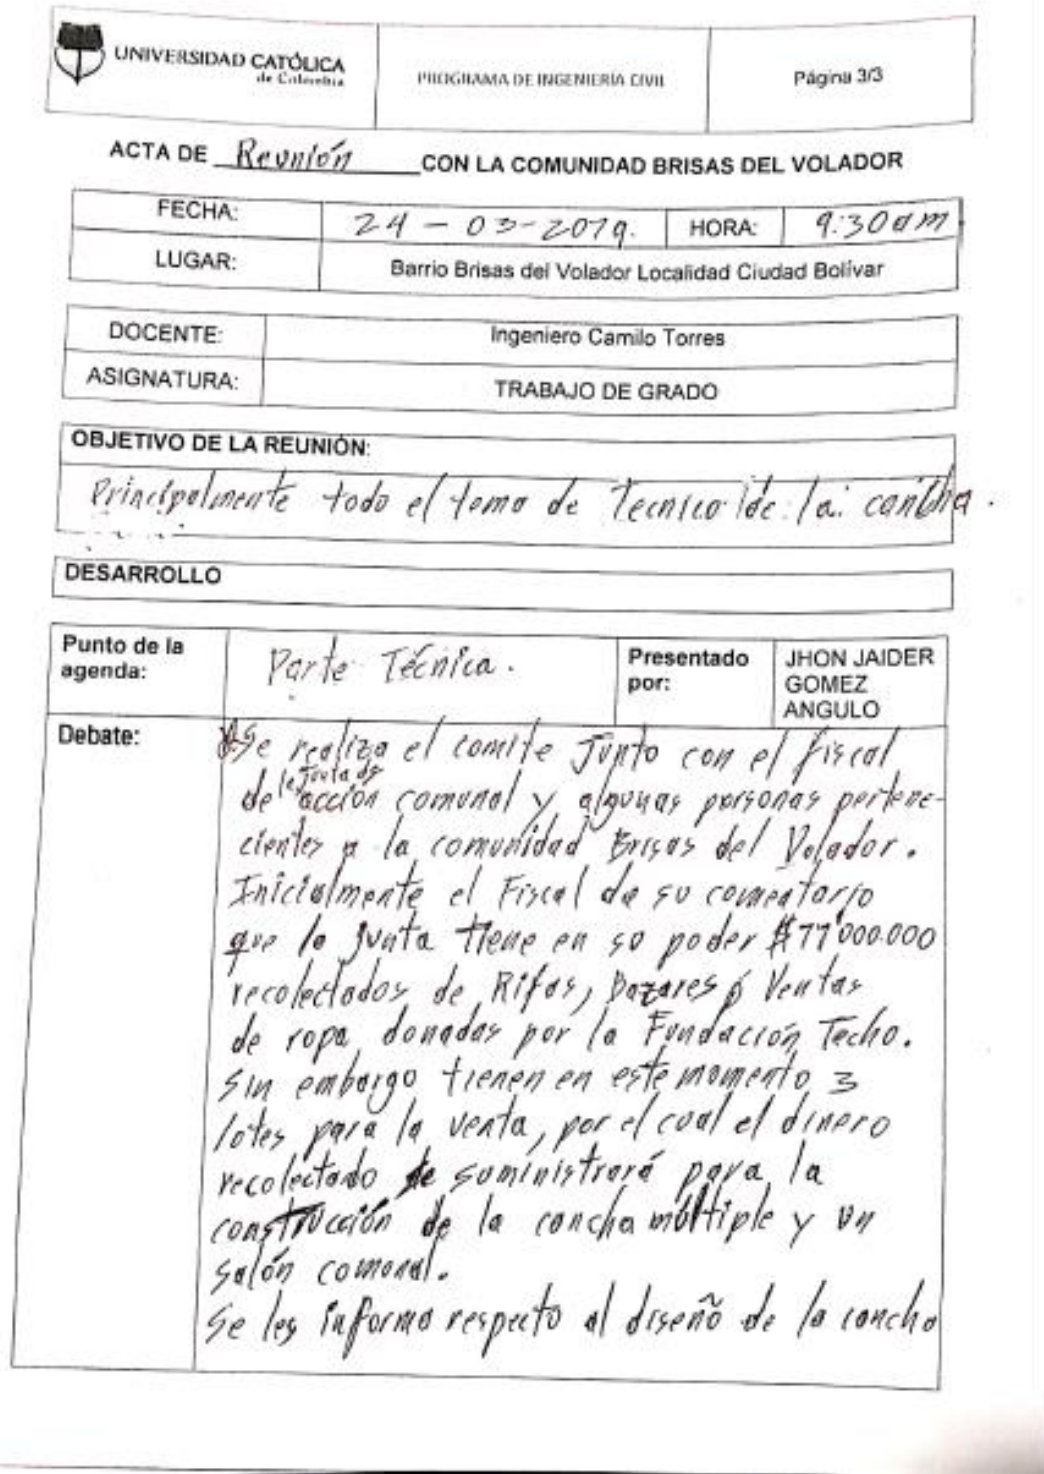 UNIVERSIDAD CATÓLICA
de Colombia
PROGRAMA DE INGENIERÍA CIVIL
Página 3/3
ACTA DE Reunión CON LA COMUNIDAD BRISAS DEL VOLADOR
FECHA: 24-03-2019. HORA: 9:30am
LUGAR: Barrio Brisas del Volador Localidad Ciudad Bolívar
DOCENTE: Ingeniero Camilo Torres
ASIGNATURA: TRABAJO DE GRADO
OBJETIVO DE LA REUNIÓN:
Principalmente todo el tema de Tecnico de la cancha.
DESARROLLO
Punto de la agenda: Parte Técnica. Presentado por: JHON JAIDER GOMEZ ANGULO
Debate: Se realiza el comite Junto con el fiscal
de la Junta de acción comunal y algunas personas pertene-
cientes a la comunidad Brisas del Volador.
Inicialmente el Fiscal da su comentario
que la Junta tiene en su poder $77'000.000
recolectados de Rifas, Bazares ó Ventas
de ropa donadas por la Fundación Techo.
Sin embargo tienen en este momento 3
lotes para la venta, por el cual el dinero
recolectado se suministrará para la
construcción de la cancha múltiple y un
salón comunal.
Se les informa respecto al diseño de la cancha